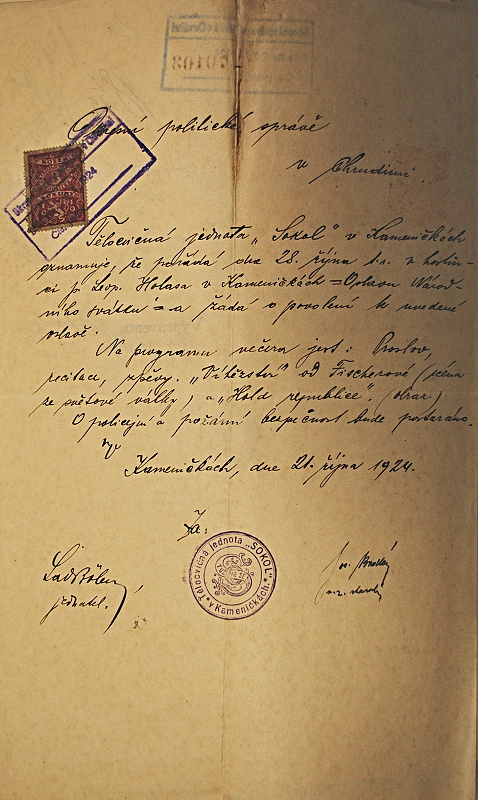 60103
politické správě
v Chrudimi.
KOLEK
1924
Tělocvičná jednota „Sokol" v Kameničkách
oznamuje, že pořádá dne 28. října t.r. v hostin-
ci p. Leop. Holasa v Kameničkách = Oslavu Národ-
ního svátku = a žádá o povolení k uvedené
oslavě.
Na programu večera jest: Proslov,
recitace, zpěvy. „Vítězství" od Fischerové (scéna
ze světové války) a „Hold republice". (obraz)
O policejní a požární bezpečnost bude postaráno.
V Kameničkách, dne 21. října 1924.
Za:
Tělocvičná jednota „SOKOL"
v Kameničkách.
jednatel.